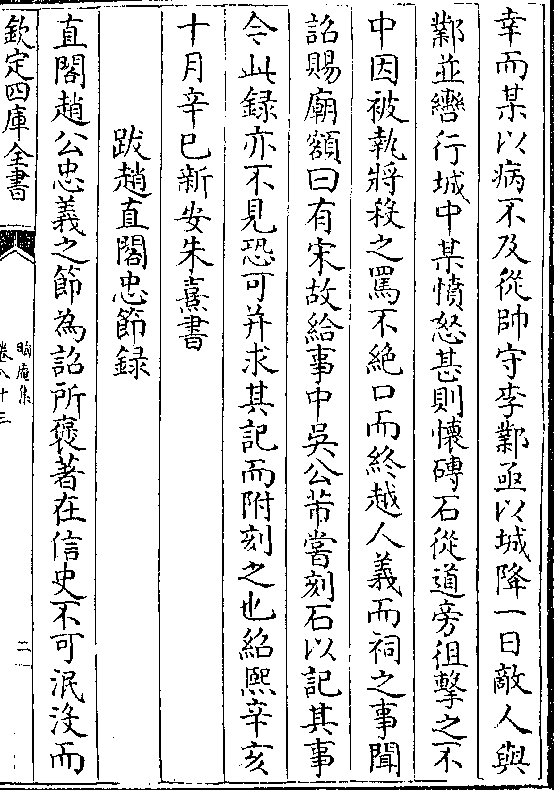 幸而某以病不及從帥守李鄴亟以城降一日敵人與
鄴並轡行城中某憤怒甚則懷磚石從道旁徂擊之不
中因被執將殺之罵不絕口而終越人義而祠之事聞
詔賜廟額曰有宋故給事中吳公芾嘗刻石以記其事
今此録亦不見恐可并求其記而附刻之也紹熙辛亥
十月辛巳新安朱熹書
跋趙直閣忠節録
直閣趙公忠義之節為詔所褒著在信史不可泯沒而
欽定四庫全書
晦庵集
卷八十三
二